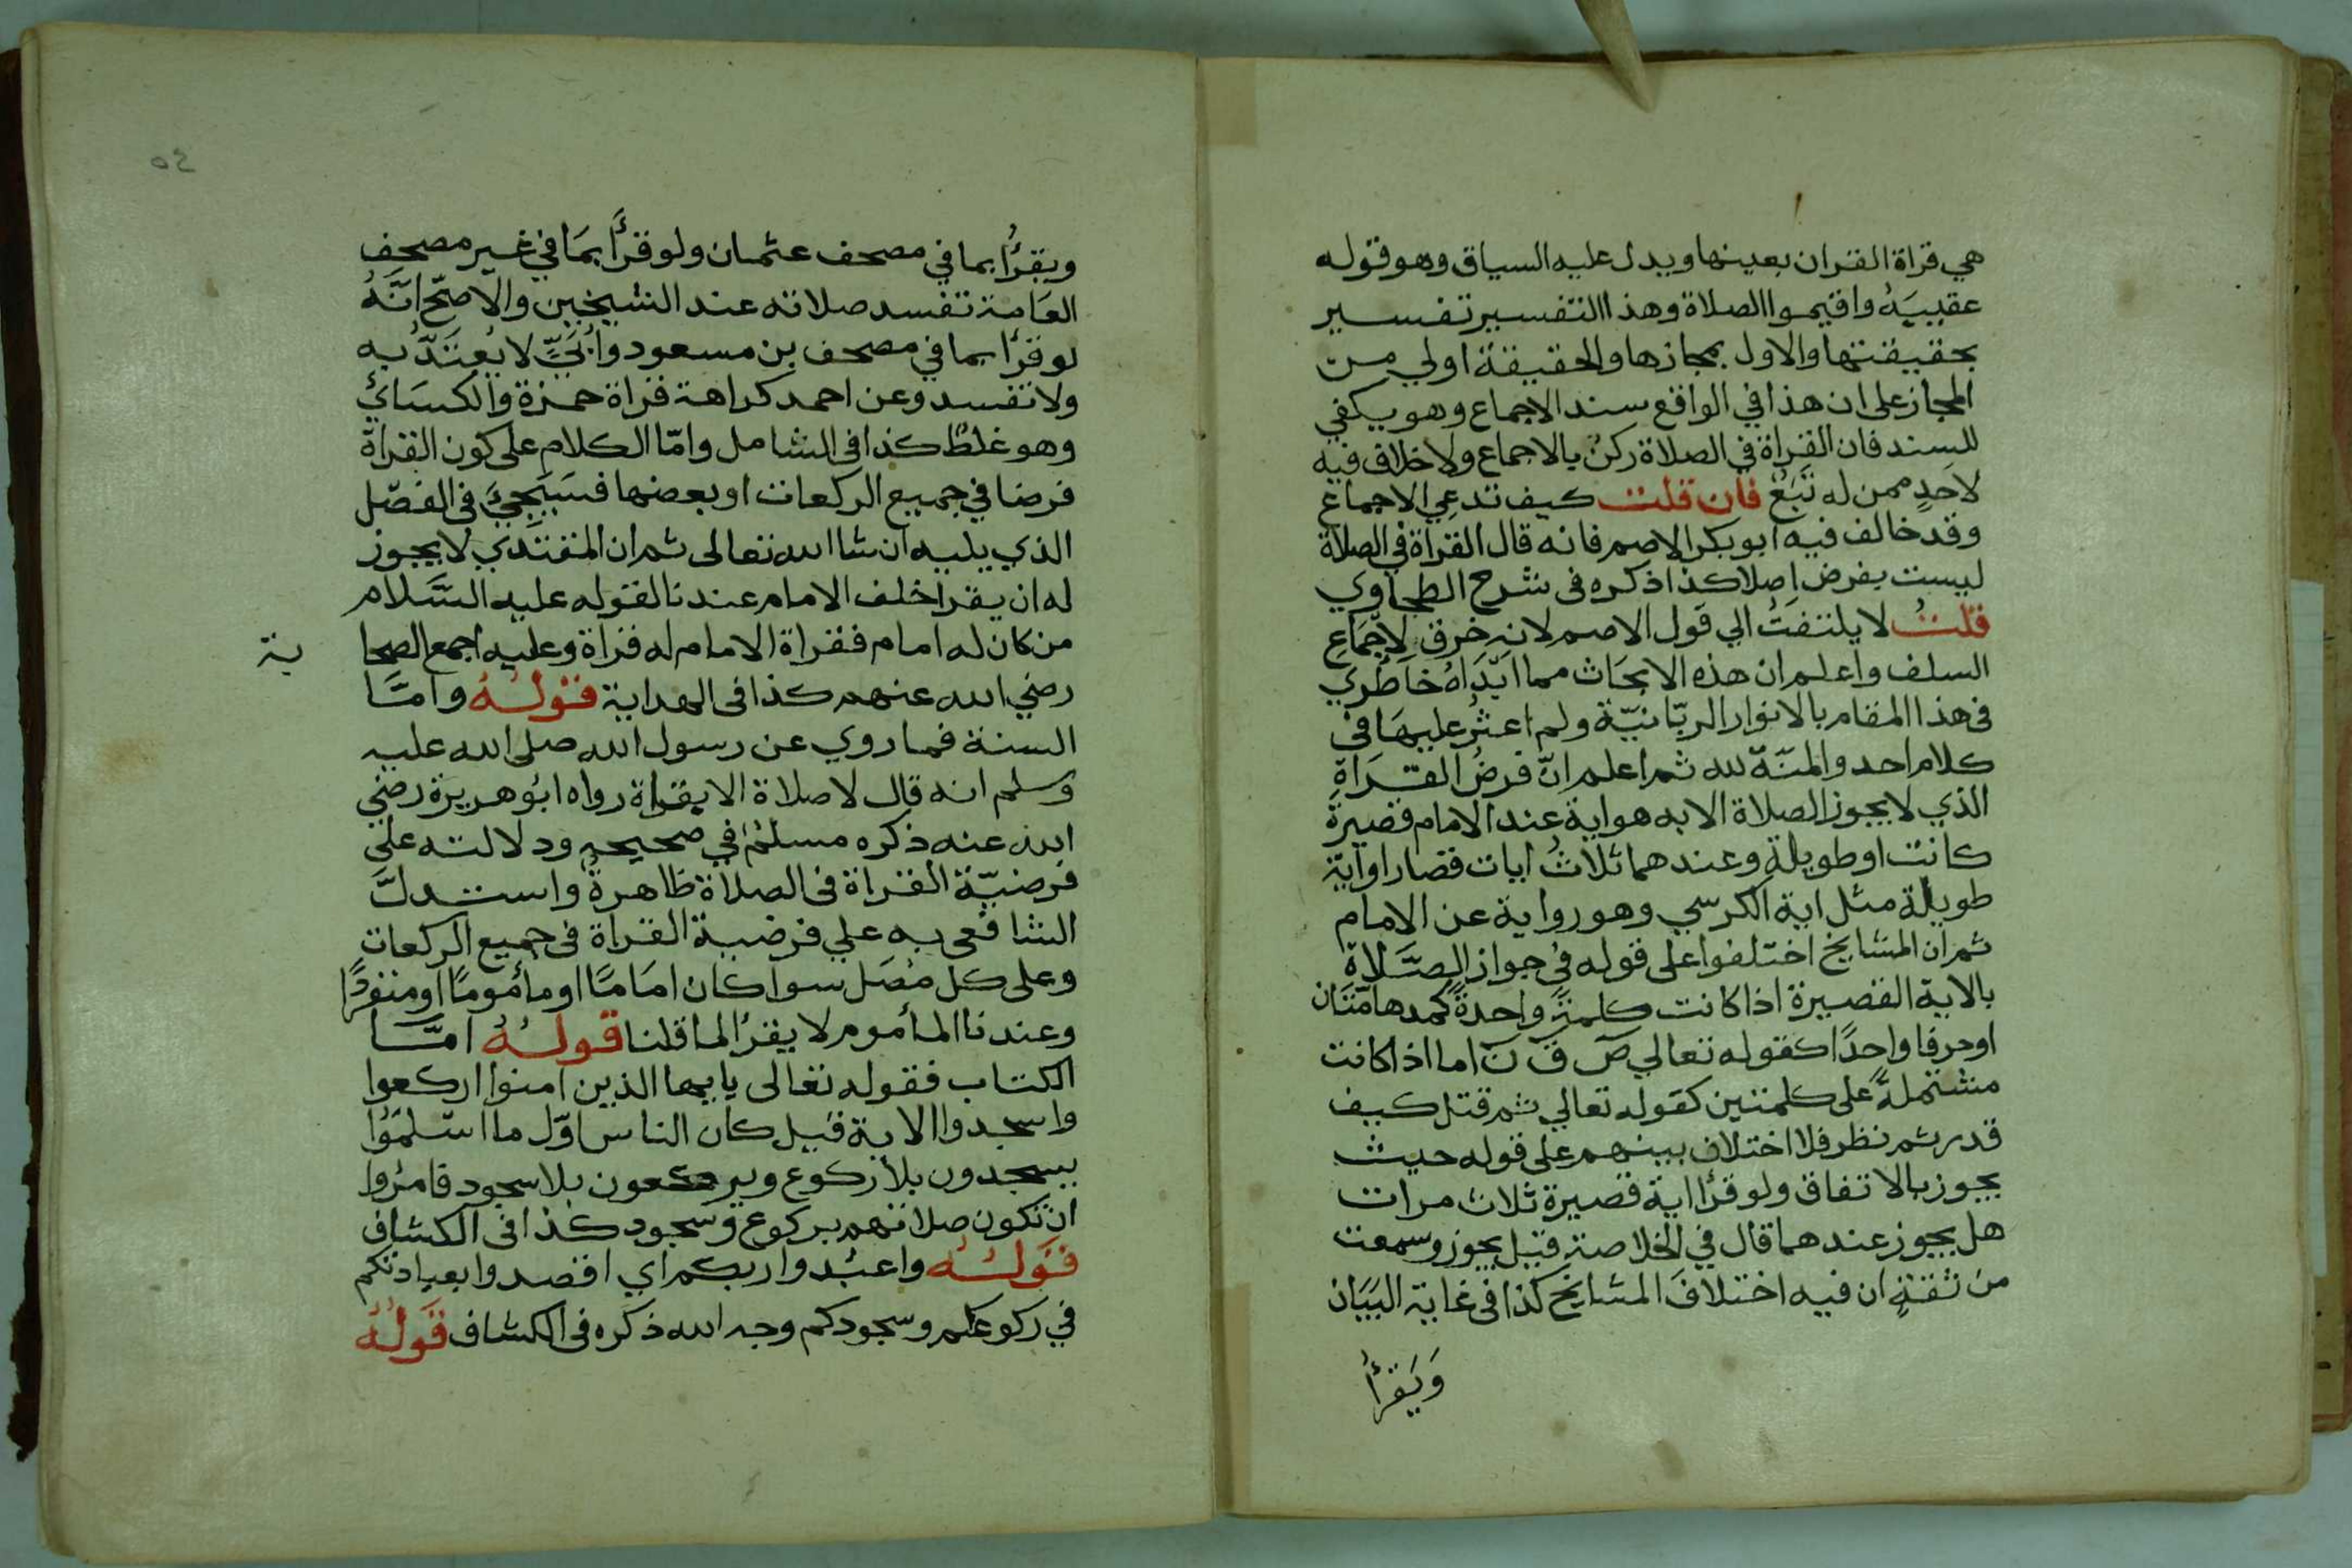 هي قراة القران بعينها ويدل عليه السياق وهو قوله
عقيبيه واقيموا الصلاة وهذا التفسير تفسير
بحقيقتها والاول بمجازها والحقيقة اولي من
المجاز على ان هذا في الواقع سند الاجماع وهو يكفي
للسند فان القراة في الصلاة ركن بالاجماع ولا خلاف فيه
لاحدٍ ممن له تَبَعٌ فان قلت كيف تدعي الاجماع
وقد خالف فيه ابو بكر الاصم فانه قال القراة في الصلاة
ليست بفرض اصلا كذا ذكره في شرح الطحاوي
قلتُ لا يلتفتُ الي قول الاصم لانه خرق لاجماع
السلف واعلم ان هذه الابحاث مما ابداهُ خاطري
في هذا المقام بالانوار الربّانيّة ولم اعثر عليها في
كلام احد والمنّة لله ثم اعلم انّ فرضُ القراةِ
الذي لا يجوز الصلاة الا به هو اية عند الامام قصيرة
كانت او طويلة وعندهما ثلاثُ ايات قصار او اية
طويلة مثل اية الكرسي وهو رواية عن الامام
ثم ان المشايخ اختلفوا على قوله في جواز الصَّلاةِ
بالاية القصيرة اذا كانت كلمةً واحدةً كمدهامّتان
او حرفا واحدًا كقوله تعالي صٓ قٓ نٓ اما اذا كانت
مشتملةً على كلمتين كقوله تعالي ثم قتل كيف
قدر ثم نظر فلا اختلاف بينهم على قوله حيث
يجوز بالاتفاق ولو قرأ اية قصيرة ثلاث مرات
هل يجوز عندهما قال في الخلاصة قيل يجوز وسمعت
من ثقةٍ ان فيه اختلافَ المشايخ كذا في غاية البيان
وَيَقرأُ
٥٤
ويقرأُ بما في مصحف عثمان ولو قرأَ بمَا في غير مصحف
العَامة تفسد صلاته عند الشيخين والاصحّ انَّهُ
لو قرأ بما في مصحف بن مسعود واُبَيٍّ لا يُعتَدُّ به
ولا تفسد وعن احمد كراهة قراة حمزة والكسَائي
وهو غلطٌ كذا في الشامل وامّا الكلام على كون القراة
فرضا في جميع الركعات او بعضها فسَيَجِيَُ في الفصّل
الذي يليه ان شا الله تعالى ثم ان المقتدي لا يجوز
له ان يقرا خلف الامام عندنا لقوله عليه السَّلام
من كان له امام فقراة الامام له قراة وعليه اجمع الصحا
بة
رضي الله عنهم كذا في الهداية قولهُ وامَّا
السنة فما روي عن رسول الله صلى الله عليه
وسلم انه قال لا صلاة الا بقراة رواه ابُو هريرة رضي
الله عنه ذكره مسلمٌ في صحيحه ودلالته علي
فرضيّة القراة في الصلاة ظاهرةٌ واستدلَّ
الشافعي به علي فرضية القراة في جميع الركعات
وعلى كل مُصَل سوا كان امَامًا او مأمُومًا او منفردًا
وعندنا المأموم لا يقرأ لما قلنا قولهُ امَّا
الكتاب فقوله تعالى يا يها الذين امنوا اركعوا
واسجدوا الاية قيل كان الناس اوّل ما اسْلمَوُا
يسجدون بلا ركوع ويركعون بلا سجود فامُروا
ان تكون صلاتهم بركوع وسجود كذا في الكشاف
قولهُ واعبُدوا ربكم اي اقصدوا بعبادتكم
في ركوعكم وسجودكم وجه الله ذكره في الكشاف قولهُ